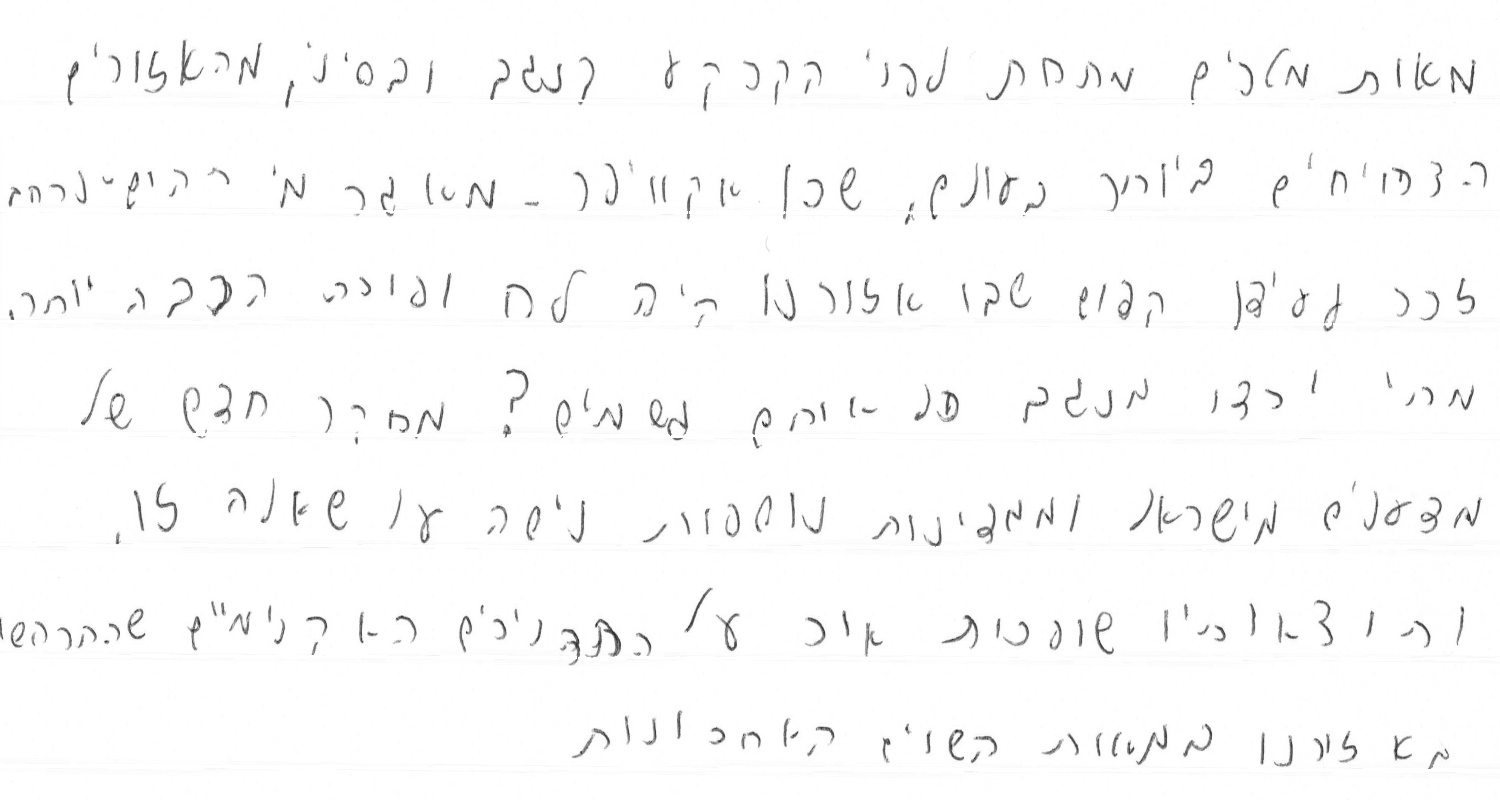 מאות מטרים מתחת לפני הקרקע בנגב ובסיני, מהאזורים
הצחיחים ביותר בעולם, שכן אקוויפר - מאגר מי תהום נרחב
זכר לעידן קדום שבו אזורנו היה לח ופורה הרבה יותר.
מתי ירדו בנגב אותם גשמים? מחקר חדש של
מדענים מישראל וממדינות נוספות ניסה על שאלה זו,
ותוצאותיו שופכות אור על התהליכים האקלימ"ם שהתרחשו
באזורנו במאות השנים האחרונות